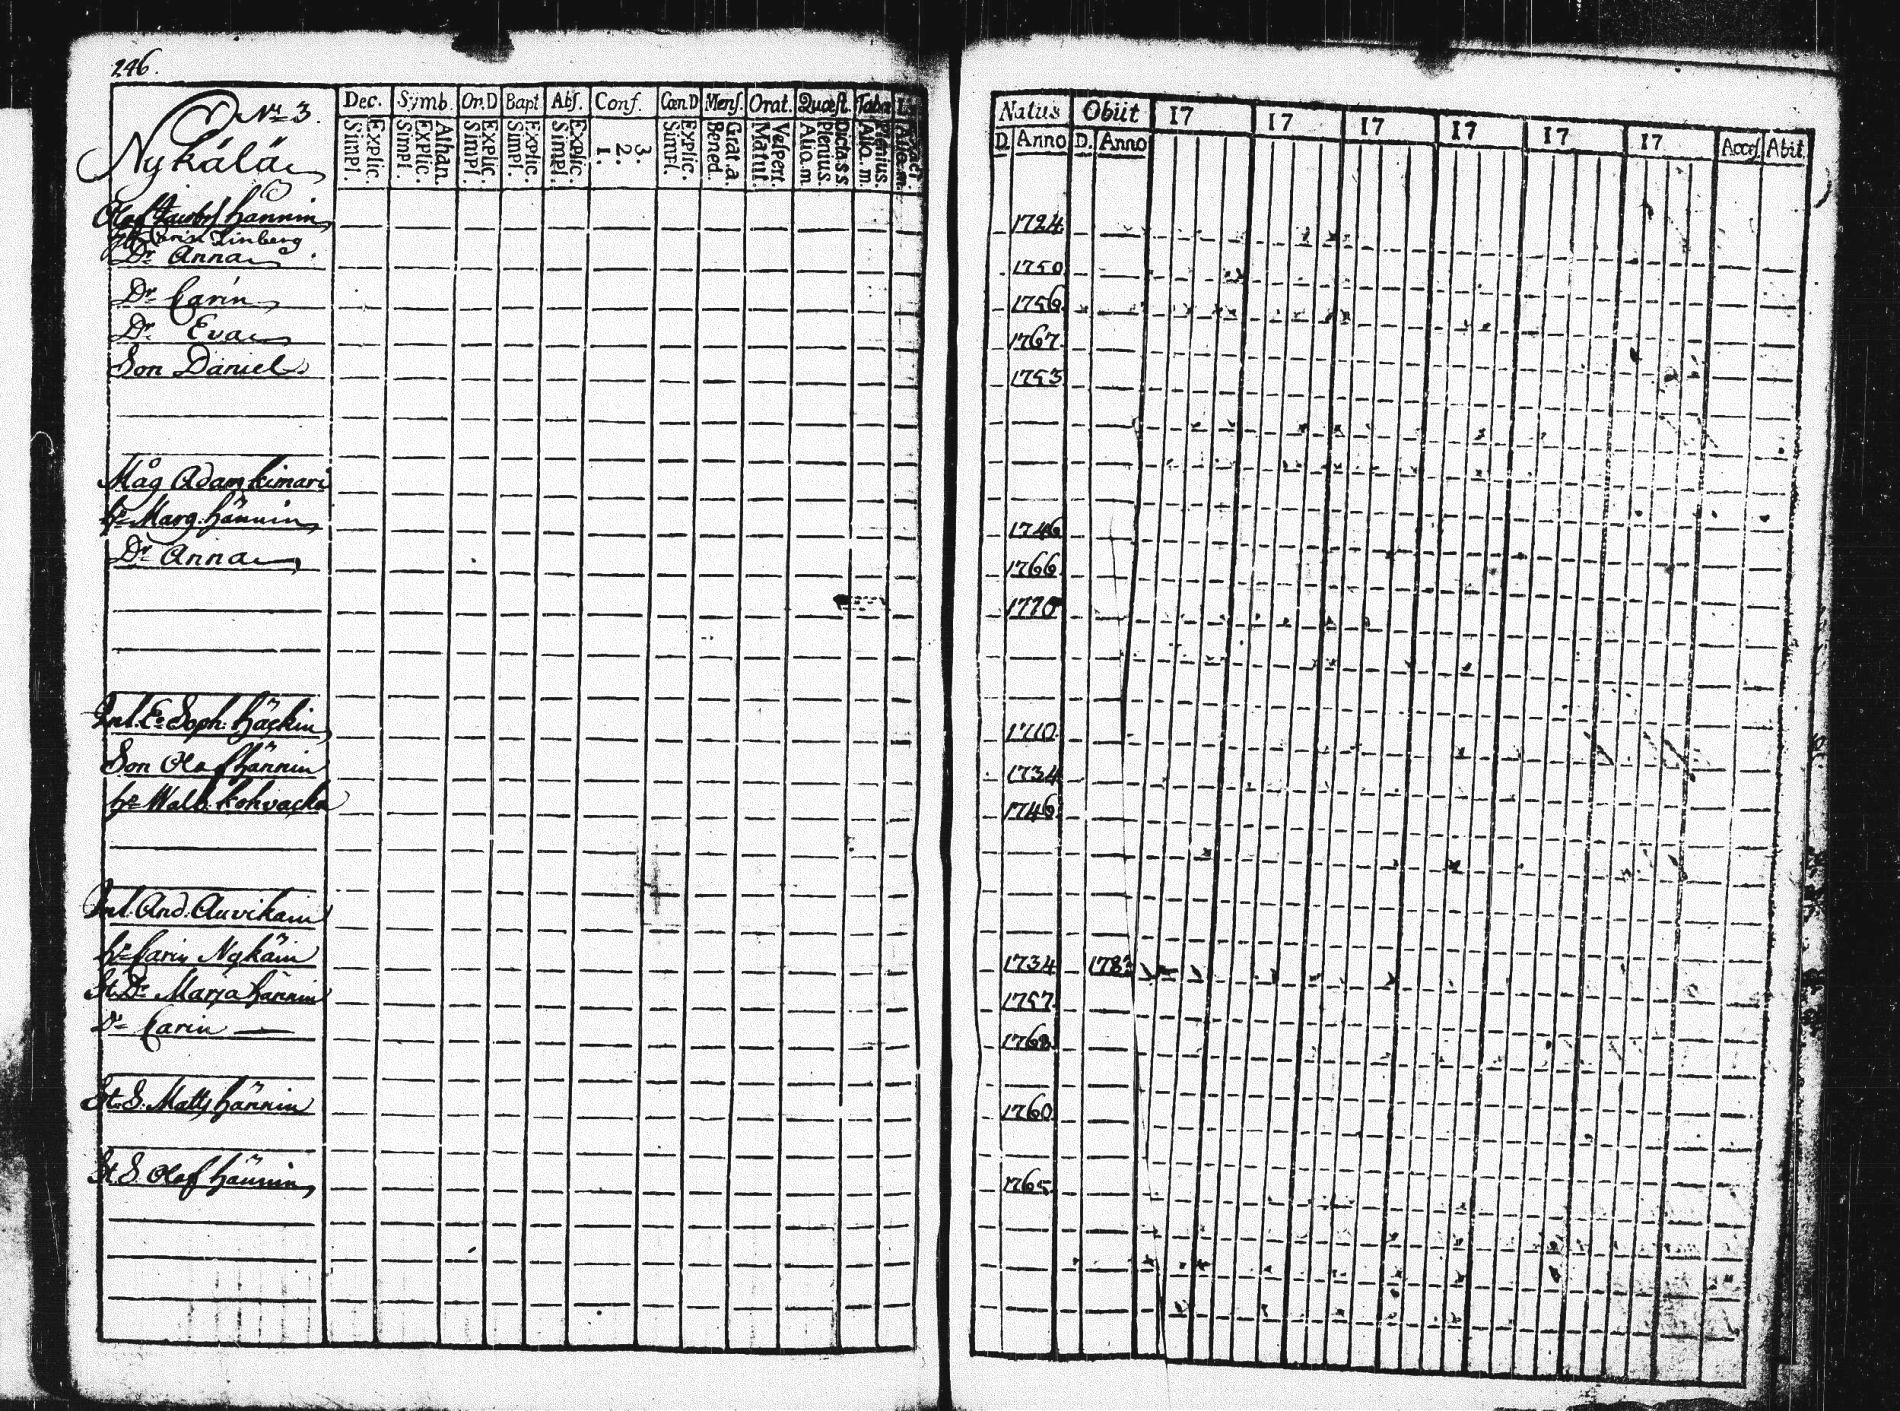 246.
Nr 3.
Nykälä
Dec. Symb. Or. D Bapt Abs. Conf. Cœn D Mens. Orat. Quæst. Taba
Simpl. Explic. Simpl. Explic. Athan. Simpl. Explic. Simpl. Explic. Simpl. Explic. 1. 2. 3. Simpl. Explic. Bened. Grat. a. Matut. Vespert. Alio. m Plenius. Alio. m. Plenius.
Natus Obiit 17 17 17 17 17 17 Acces. Abit.
D. Anno D. Anno
Olof Hännin 1724
Carin Linberg
Dr Anna 1750
Dr Carin 1756
Dr Eva 1767
Son Daniel 1753
Måg Adam Kimari
h. Marg. Hännin 1746
Dr Anna 1766
1770
Inl. E. Soph. Häckin 1710
Son Olof Hännin 1734
h. Walb. Kohvacka 1746
Inl. And. Auvikain
h. Carin Nykäin 1734 178
St. Dr Marja Hännin 1757
Dr Carin 1768
St. S. Matts Hännin 1760
St S. Olof Hännin 1765